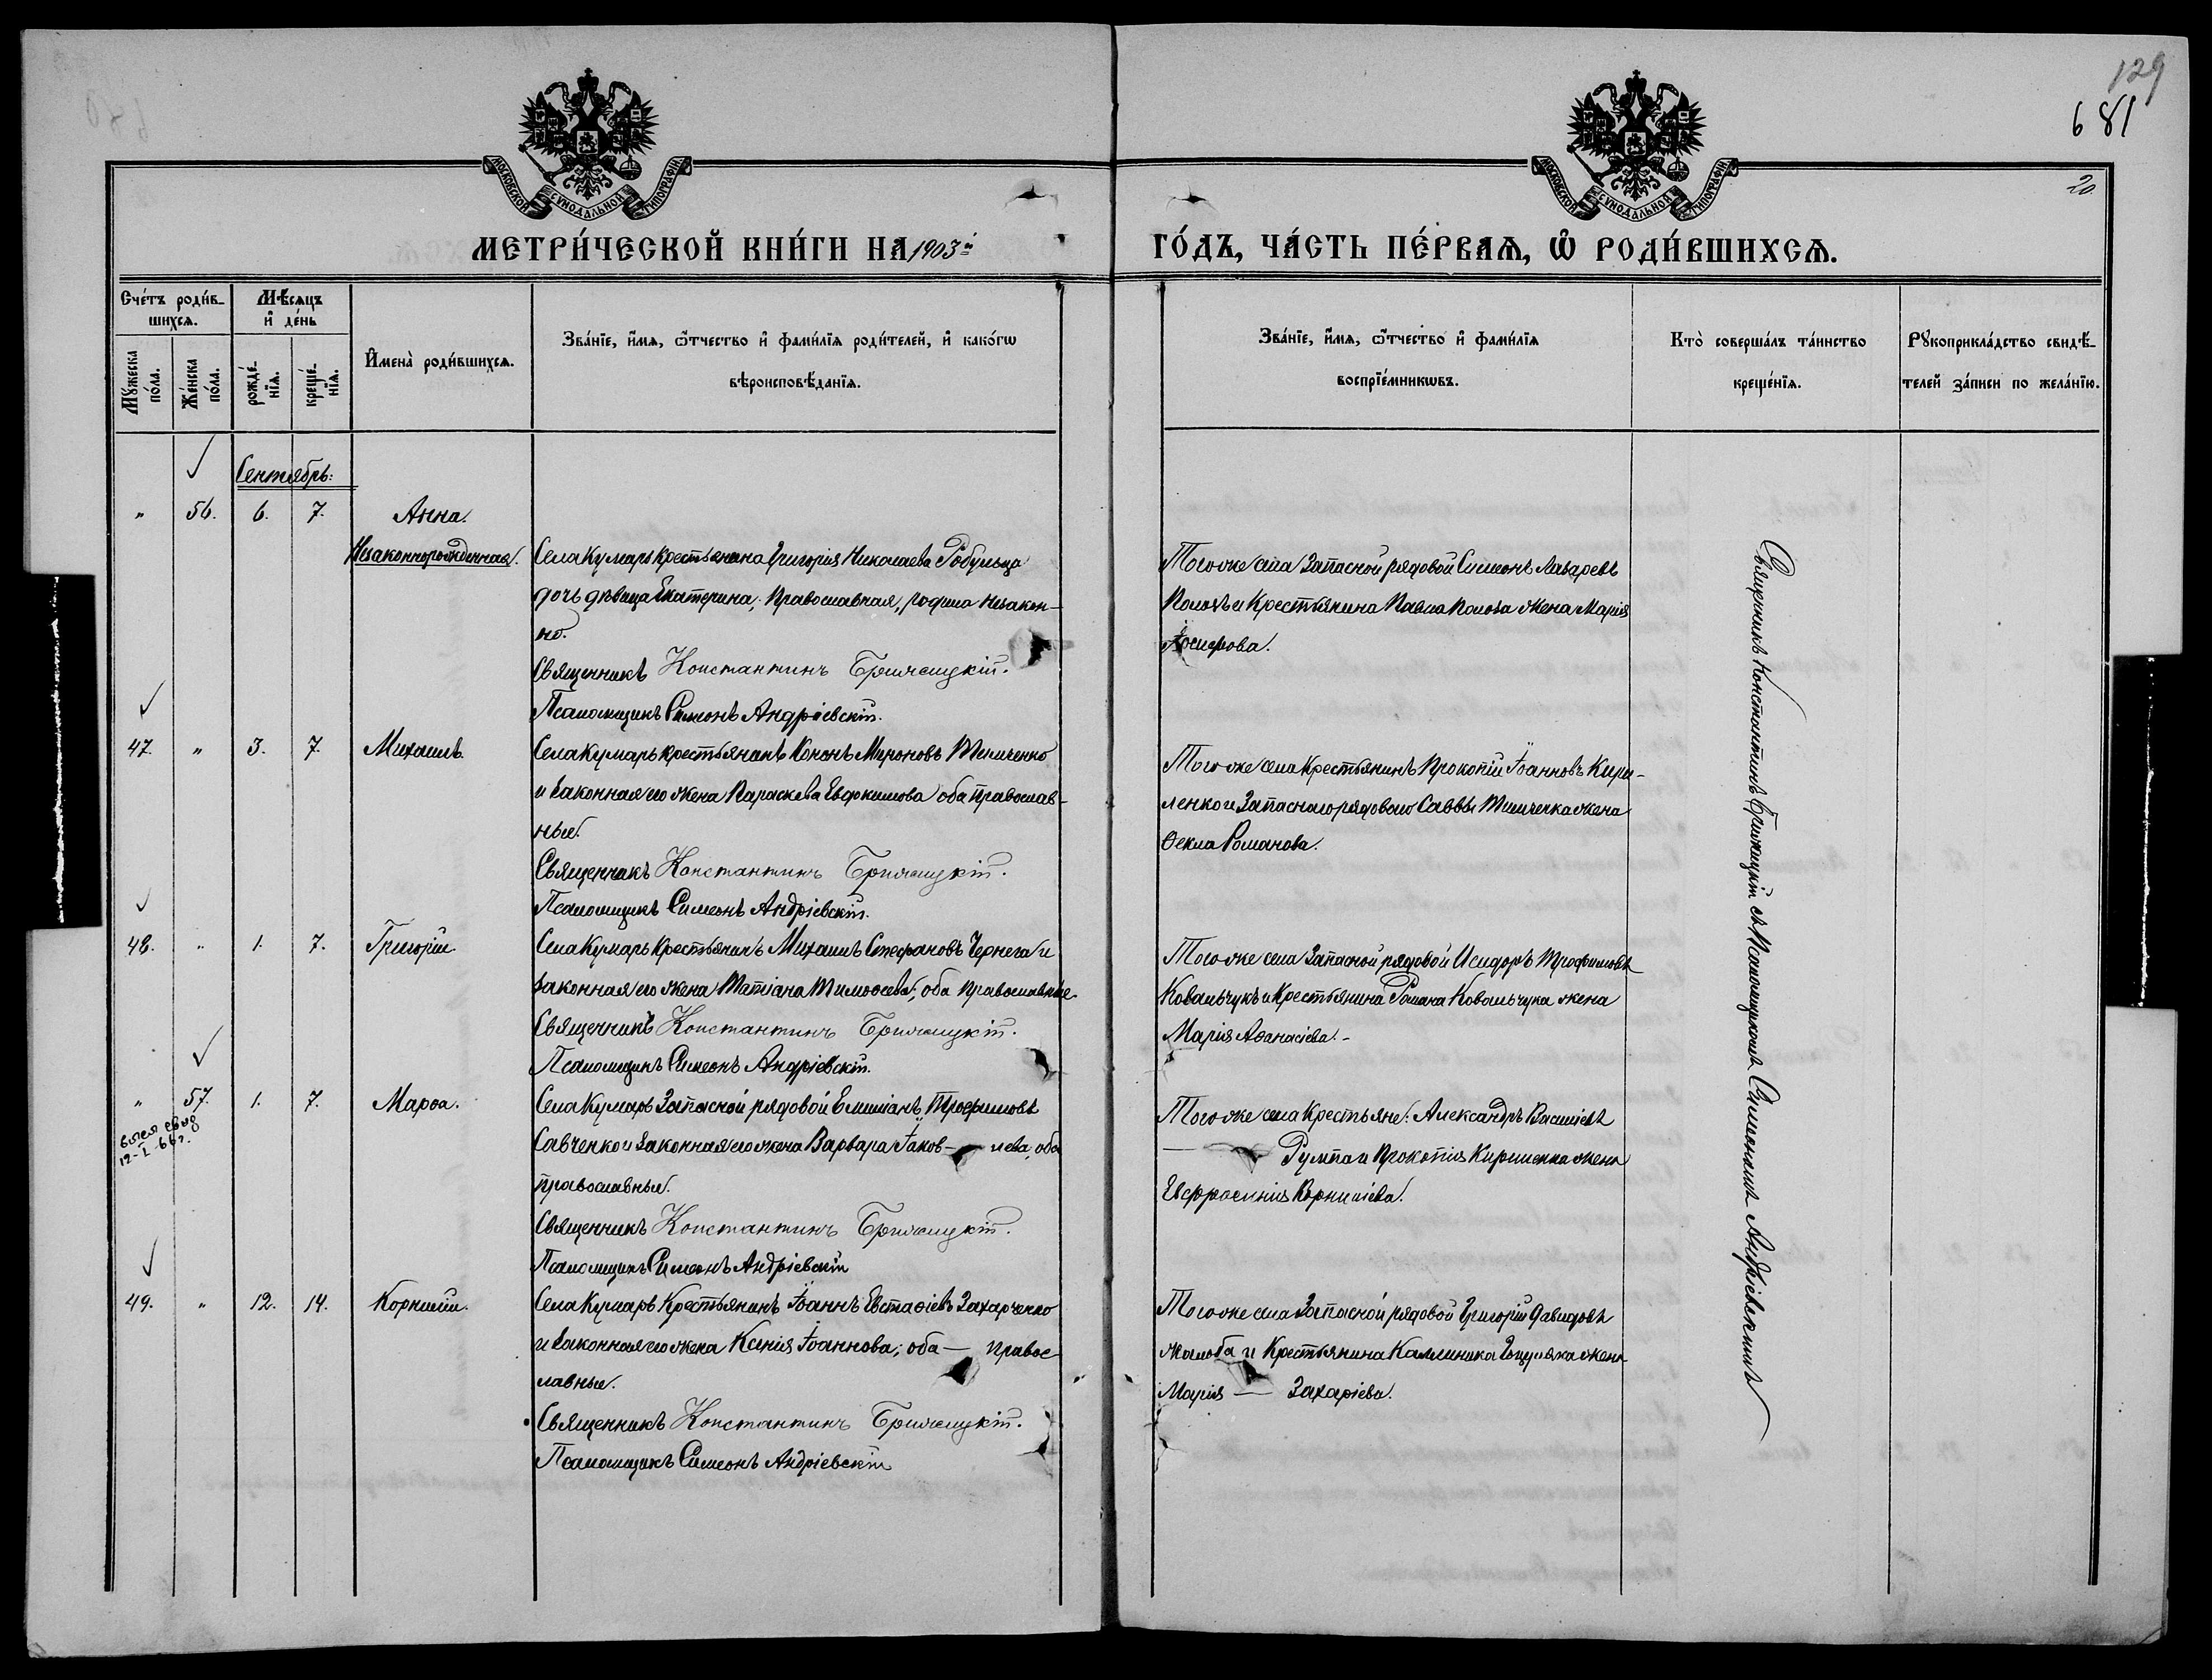 129
681
20.
МОСКОВСКОЙ СУНОДАЛЬНОЙ ТИПОГРАФІИ
МОСКОВСКОЙ СУНОДАЛЬНОЙ ТИПОГРАФІИ
МЕТРИ́ЧЕСКОЙ КНИ́ГИ НА 1903й
ГО́ДЪ, ЧА́СТЬ ПЕ́РВАѦ, Ѿ РОДИ́ВШИХСѦ.
Сче́тъ роди́в-
шихсѧ.
Мꙋ́жеска по́ла.
Же́нска по́ла.
Мѣ́сѧцъ
и҆ де́нь
рожде́-
нїѧ.
креще́-
нїѧ.
И҆мена̀ роди́вшихсѧ.
Зва́нїе, и҆́мѧ, ѻ҆́тчество и҆ фами́лїѧ роди́телей, и҆ како́гѡ
вѣроисповѣ́данїѧ.
Зва́нїе, и҆́мѧ, ѻ҆́тчество и҆ фами́лїѧ
воспрїе́мникѡвъ.
Кто̀ соверша́лъ та́инство
креще́нїѧ.
Рꙋкоприкла́дство свидѣ́-
телей за́писи по жела́нїю.
Сентябрь:
" 56. 6. 7. Анна.
Незаконнорожденная.
Села Кумарь крестьянина Григорія Николаева Робульца
дочь дѣвица Екатерина, православная, родила незакон-
но.
Священникъ Константинъ Брижицкій.
Псаломщикъ Симеонъ Андріевскій.
Того же села запасной рядовой Симеонъ Лазаревъ
Поповъ и крестьянина Павла Попова жена Марія
Іосифова.
47. " 3. 7. Михаилъ.
Села Кумарь крестьянинъ Кононъ Мироновъ Тимченко
и законная его жена Параскева Евфимова оба православ-
ные.
Священникъ Константинъ Брижицкій.
Псаломщикъ Симеонъ Андріевскій.
Того же села крестьянинъ Прокопій Іоанновъ Кири-
ленко и запаснаго рядового Саввы Тимченка жена
Ѳекла Романова.
48. " 1. 7. Григорій.
Села Кумарь крестьянинъ Михаилъ Стефановъ Чернега и
законная его жена Татіана Тимоѳеева, оба православные.
Священникъ Константинъ Брижицкій.
Псаломщикъ Симеонъ Андріевскій.
Того же села запасной рядовой Исидоръ Трофимовъ
Ковальчукъ и крестьянина Романа Ковальчука жена
Марія Аѳанасіева.-
" 57. 1. 7. Марѳа.
12-I-66г.
Села Кумарь запасной рядовой Емиліанъ Трофимовъ
Савченко и законная его жена Варвара Іаков- лева, оба
православные.
Священникъ Константинъ Брижицкій.
Псаломщикъ Симеонъ Андріевскій
Того же села крестьяне: Александръ Васильевъ
Румпа и Прокопія Кириленка жена
Евфросинія Корниліева.
49. " 12. 14. Корнилій.
Села Кумарь крестьянинъ Іоаннъ Евстаѳіевъ Захарченко
и законная его жена Ксенія Іоаннова; оба — правос-
лавные.
Священникъ Константинъ Брижицкій.
Псаломщикъ Симеонъ Андріевскій
Того же села запасной рядовой Григорій Давидовъ
Жалоба и крестьянина Каллиника Гоцуляка жена
Марія — Захаріева.
Священникъ Константинъ Брижицкій съ псаломщикомъ Симеономъ Андріевскимъ